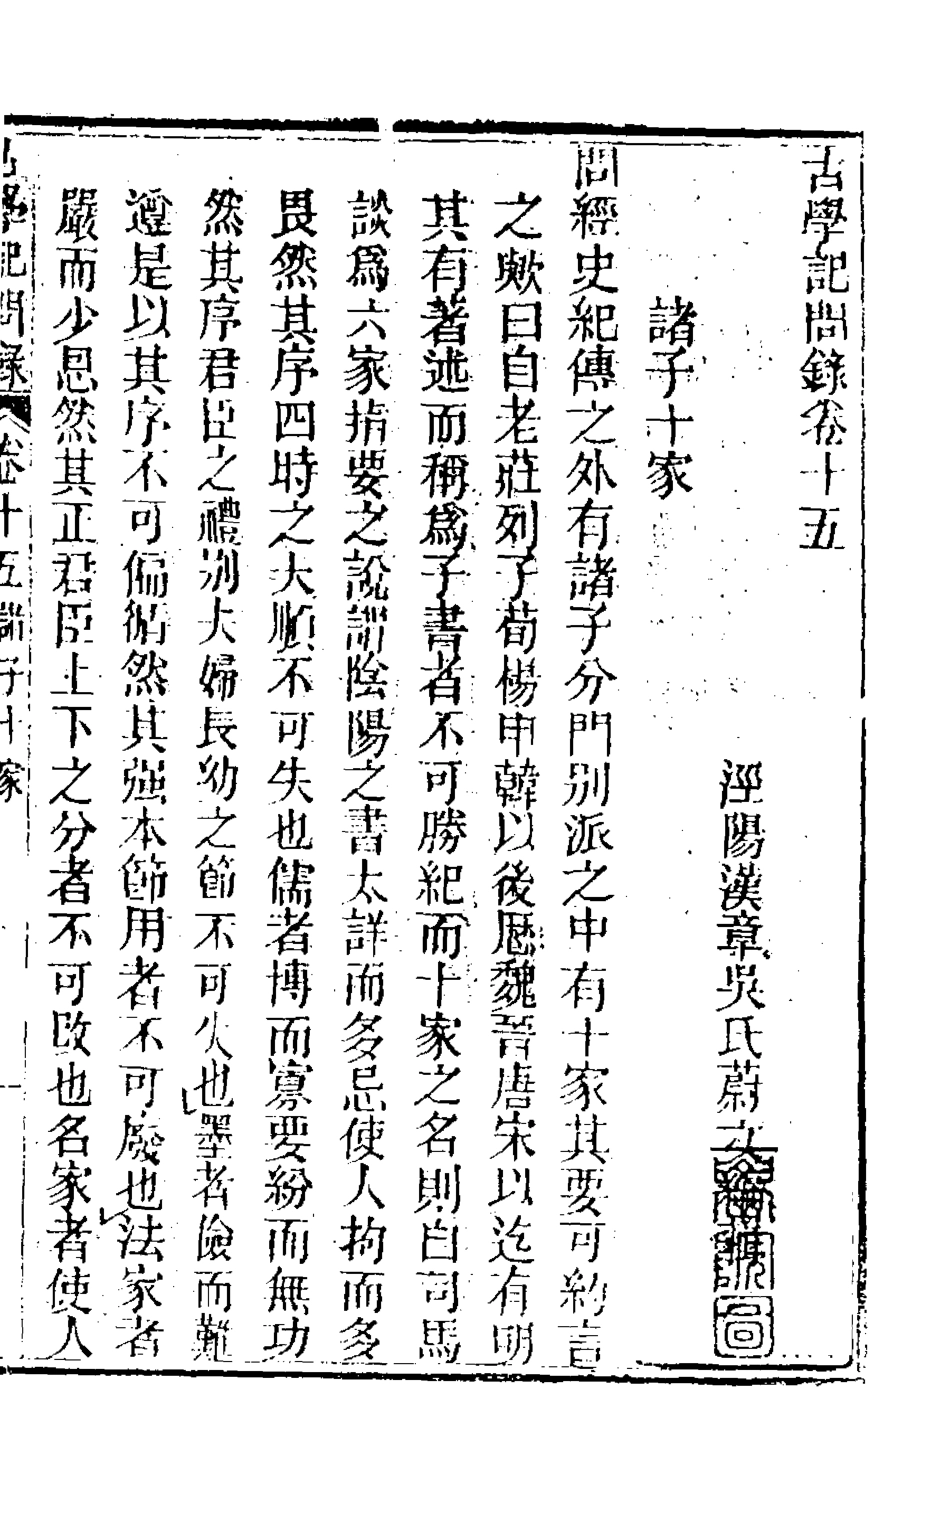 古學記問錄卷十五
涇陽漢章吳氏蔚文
諸子十家
問經史紀傳之外有諸子分門別派之中有十家其要可約言
之歟曰自老莊列子荀楊申韓以後歷魏晉唐宋以迄有明
其有著述而稱爲子書者不可勝紀而十家之名則自司馬
談爲六家指要之說謂陰陽之書太詳而多忌使人拘而多
畏然其序四時之大順不可失也儒者博而寡要紛而無功
然其序君臣之禮別夫婦長幼之節不可失也墨者儉而難
遵是以其序不可偏循然其强本節用者不可廢也法家者
嚴而少恩然其正君臣上下之分者不可改也名家者使人
古學記問錄 卷十五諸子十家